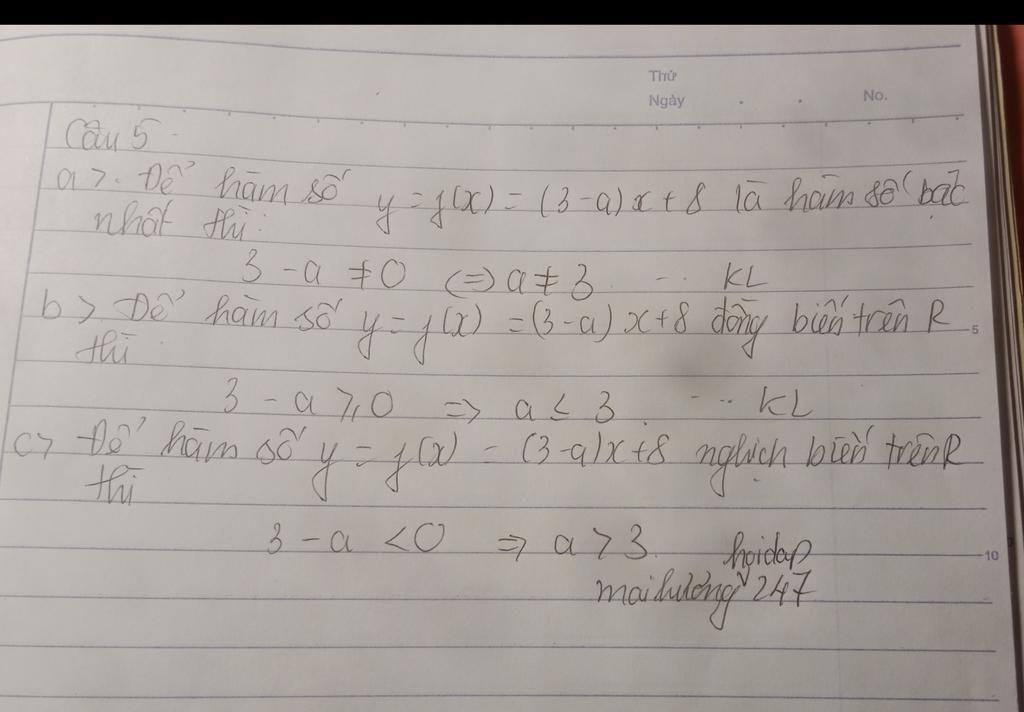 Thứ
Ngày . . No.
Câu 5
a>. Để hàm số y = f(x) = (3-a)x + 8 là hàm số bậc
nhất thì:
3 - a ≠ 0 <=> a ≠ 3 ... KL
b> Để hàm số y = f(x) = (3-a)x+8 đồng biến trên R
5
thì
3 - a ≥ 0 => a ≤ 3 ... KL
c> Để hàm số y = f(x) = (3-a)x+8 nghịch biến trên R
thì
3 - a < 0 => a > 3. hoidap
10
maihương 247